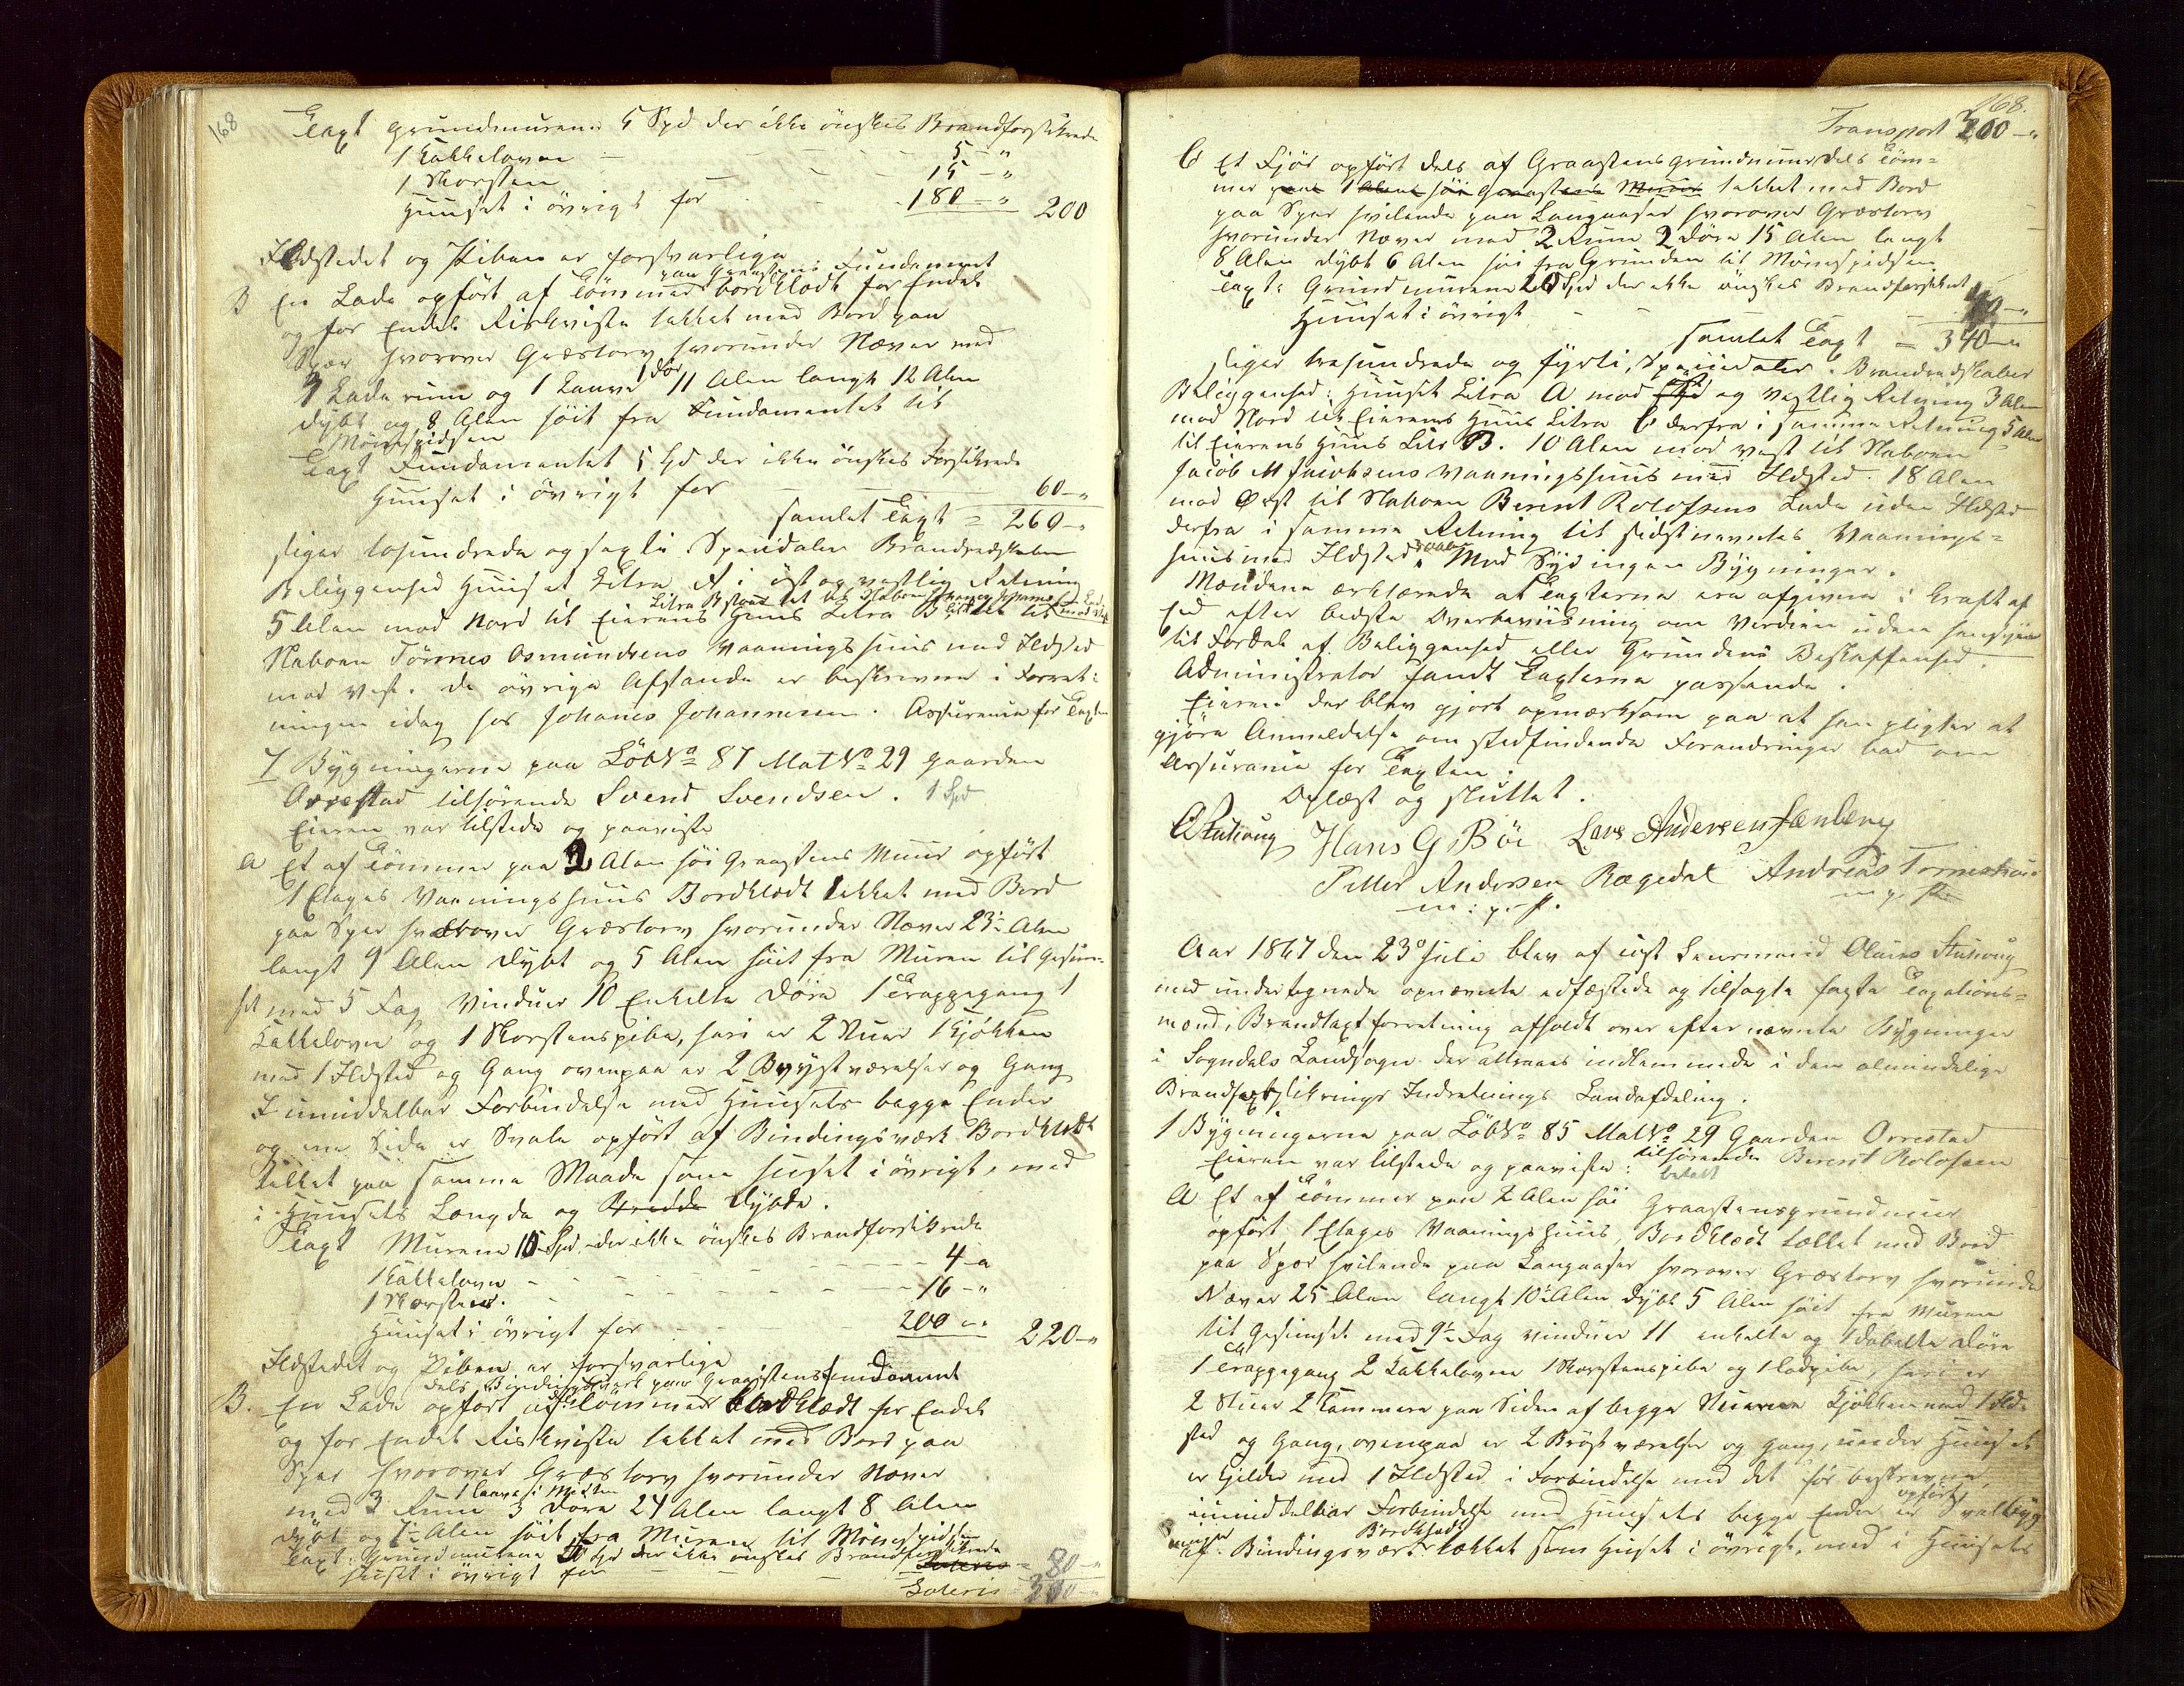 168
Taxt Grundmuren 5 Spd der ikke ønskes Brandforsikrede
1 Kakkelovn - - - 5 - "
1 Skorsten - - - 15 - "
Huuset i øvrigt for - - - 180 - " 200
Ildstedet og Piben er forsvarlige
paa Graasteens Fundament
B En Lade opført af Tømmer bordklædt for Endel
og for Endel Riskviste tækket med Bord paa
Spær hvorover Græstorv hvorunder Næver med
1 Dør
Laderum og 1 Laave 11 Alen langt 12 Alen
dybt og 8 Alen høit fra Fundamentet til
Mønespidsen
Taxt Fundamentet 5 Spd der ikke ønskes Forsikrede
Huuset i øvrigt for - - - 60 - "
samlet Taxt = 260 - "
siger tohundrede og sexti Speciedaler Brandredskaber
Beliggenhed Huuset Litra A i øst og vestlig Retning
5 Alen mod Nord til Eierens Huus Litra B
Naboen Tönnes Osmundsens Vaaningshuus med Ildsted
mod Vest. De øvrige Afstande er beskrevne i Forret-
ningen idag hos Johanes Johannesen. Assurance for Taxten
7 Bygningerne paa LöbNo 87 MatNo 29 Gaarden
Orrestad tilhørende Svend Svendsen. 1 Spd
Eieren var tilstede og paaviste
A Et af Tømmer paa 2 Alen høi Graasteens Muur opført
1 Etages Vaaningshuus Bordklædt tækket med Bord
paa Spær hvorover Græstorv hvorunder Næver 23 Alen
langt 9 Alen dybt og 5 Alen høit fra Muren til Gesim-
set med 5 Fag Vinduer 10 Enkelte Døre 1 Trappegang 1
Kakkelovn og 1 Skorstenspibe, heri er 2 Stuer 1 Kjøkken
med 1 Ildsted og Gang ovenpaa er 2 Brystværelser og Gang
I umiddelbar Forbindelse med Huusets begge Ender
og ene Side er Svale opført af Bindingsværk Bordklædt
tækket paa samme Maade som huset i øvrigt, med
i Huusets Længde og Bredde Dybde.
Taxt Murene 10 Spd der ikke ønskes Brandforsikrede
1 Kakkelovn - - - 4 - "
1 Skorsten - - - 16 - "
Huuset i øvrigt for - - - 200 - " 220 - "
Ildstedet og Piben er forsvarlige
dels Bindingsværk paa Graasteens fundament
B. En Lade opført af Tømmer bordklædt for Endel
og for Endel Riskviste tækket med Bord paa
Spær hvorover Græstorv hvorunder Næver
1 Laave i Midten
med 3 Rum 3 Døre 24 Alen langt 8 Alen
dybt og 7 Alen høit fra Muren til Mønespidsen
Taxt: Grundmurene Spd der ikke ønskes Brandforsikrede
Huset i øvrigt for - - - = 80 - "
Lateris 300 - "
168.
Transport 300 - "
C Et Fjøs opført dels af Graasteensgrundmuur dels Tøm-
mer paa 1 Alens høi Graasteens Muur tækket med Bord
paa Spær hvilende paa Langaaser hvorover Græstorv
hvorunder Næver med 2 Rum 2 Døre 15 Alen langt
8 Alen dybt 6 Alen høi fra Grunden til Mønespidsen
Taxt: Grundmurene 20 Spd der ikke ønskes Brandforsikret
Huuset i øvrigt - - - 40 - "
samlet Taxt = 340 - "
siger trehundrede og fyrti, Speciedaler. Brandredskaber
Beliggenhed: Huuset Litra A mod og vestlig Retning 3 Alen
mod Nord til Eierens Huus Litra C derfra i samme Retning 5 Alen
til Eierens Huus Litr B. 10 Alen mod vest til Naboen
Jacob M Jacobsens Vaaningshuus med Ildsted. 18 Alen
mod Øst til Naboen Berent Rolofsens Lade uden Ildsted
derfra i samme Retning til sidstnævntes Vaanings-
huus med Ildsted. Mod Syd ingen Bygninger.
Mændene erklærede at Taxterne era afgivne i Kraft af
Eed efter bedste Overbeviisning om Verdien uden hensyn
til Fordel af Beliggenhed eller Grundens Beskaffenhed.
Administrator fandt Taxterne passende.
Eieren der blev gjort opmærksom paa at han pligter at
gjøre Anmeldelse om stedfindende Forandringer bad om
Assurance for Taxten.
Oplæst og sluttet.
Hans G. Böe Lars Andersen
Petter Andersen Rægedal Andreas
m. p. P. m. p. P.
Aar 1867 den 23de Juli blev af cost Lensmand Olaus Stuhoug
med undertegnede opnævnte edfæstede og tilsagte faste Taxations-
mænd, Brandtaxtforretning afholdt over efternævnte Bygninger
i Sogndals Landsogn der attraaes indlemmede i den almindelige
Brandforsikrings Indretnings Landafdeling.
1 Bygningerne paa LöbNo 85 MatNo 29 Gaarden Orrestad
tilhørende Berent Rolofsen
Eieren var tilstede og paaviste: betalt
A Et af Tømmer paa 2 Alen høi Graasteensgrundmuur
opført 1 Etages Vaaningshuus, Bordklædt tækket med Bord
paa Spær hvilende paa Langaaser hvorover Græstorv hvorunder
Næver 25 Alen langt 10 Alen dybt 5 Alen høit fra Muren
til Gesimset med 9 Fag vinduer 11 enkelte og 1 dobelte Døre
1 Trappegang 2 Kakkelovne 1 Skorstenspibe og 1 Ladpibe, heri er
2 Stuer 2 Kammere paa Siden af begge Stuerne Kjøkken med 1 Ild-
sted og Gang, ovenpaa er 2 Brøstværelser og Gang, under Huuset
er Kjelder med 1 Ildsted i Forbindelse med det før beskrevne,
umiddelbar Forbindelse med Huusets begge Ender er opført Svalbyg-
ninger af Bindingsværk Bordklædt tækket som Huset i øvrigt, med i Huusets